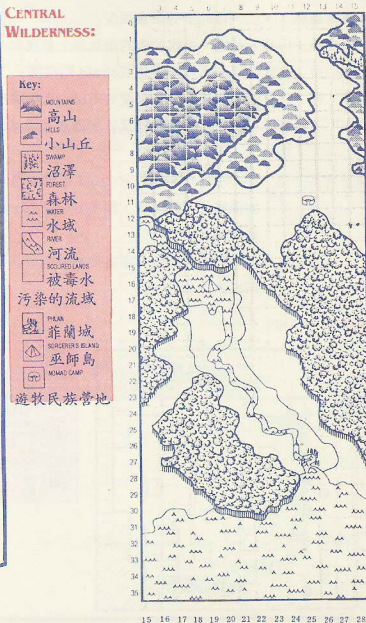 CENTRAL
WILDERNESS:
Key:
MOUNTAINS
高山
HILLS
小山丘
SWAMP
沼澤
FOREST
森林
WATER
水域
RIVER
河流
SCOURED LANDS
被毒水
汚染的流域
PHLAN
菲蘭城
SORCERER'S ISLAND
巫師島
NOMAD CAMP
遊牧民族營地
3 4 5 6 7 8 9 10 11 12 13 14 15
0
1
2
3
4
5
6
7
8
9
10
11
12
13
14
15
16
17
18
19
20
21
22
23
24
25
26
27
28
29
30
31
32
33
34
35
15 16 17 18 19 20 21 22 23 24 25 26 27 28